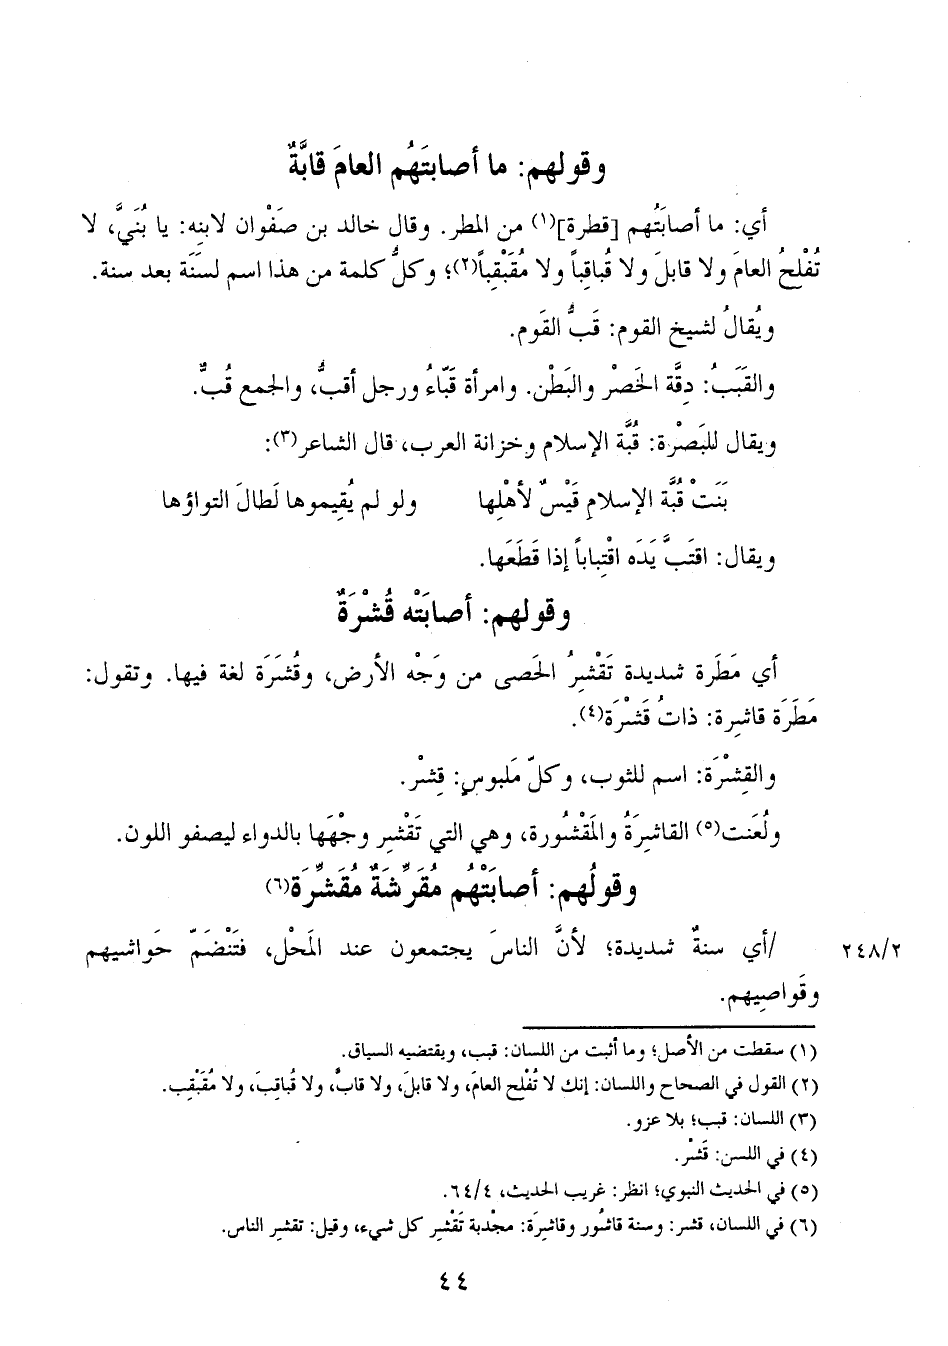 وقولهم: ما أصابتَهُم العامَ قابَّةٌ
أي: ما أصابَتُهم [قطرة](١) من المطر. وقال خالد بن صَفْوان لابنه: يا بُنَيَّ، لا
تُفْلحُ العامَ ولا قابلَ ولا قُباقِباً ولا مُقَبْقِباً(٢)؛ وكلُّ كلمة من هذا اسم لسَنَة بعد سنة.
ويُقالُ لشيخ القوم: قَبُّ القَوم.
والقَبَبُ: دِقَّة الخَصْر والبَطْن. وامرأة قَبّاءُ ورجل أقبُّ، والجمع قُبٌّ.
ويقال للبَصْرة: قُبَّة الإسلام وخزانة العرب، قال الشاعر(٣):
بَنَتْ قُبَّة الإسلامِ قَيْسٌ لأهْلِها ولو لم يُقِيموها لَطالَ التواؤها
ويقال: اقتَبَّ يَدَه اقْتِباباً إذا قَطَعَها.
وقولهم: أصابَتْه قُشْرَةٌ
أي مَطَرة شديدة تَقْشرُ الحَصى من وَجْه الأرض، وقُشَرَة لغة فيها. وتقول:
مَطَرَة قاشرة: ذاتُ قَشْرَة(٤).
والقِشْرَة: اسم للثوب، وكلّ مَلبوسٍ: قِشْر.
ولُعَنت(٥) القاشرَةُ والمَقْشُورة، وهي التي تَقْشر وجْهَها بالدواء ليصفو اللون.
وقولُهم: أصابَتْهُم مُقَرِّشَةٌ مُقَشِّرَة(٦)
٢٤٨/٢ /أي سنةٌ شديدة؛ لأنَّ الناسَ يجتمعون عند المَحْل، فتَنْضَمّ حَواشيهم
وقَواصِيهم.
(١) سقطت من الأصل؛ وما أثبت من اللسان: قبب، ويقتضيه السياق.
(٢) القول في الصحاح واللسان: إنك لا تُفْلح العامَ، ولا قابلَ، ولا قابَّ، ولا قُباقِبَ، ولا مُقَبْقِب.
(٣) اللسان: قبب؛ بلا عزو.
(٤) في اللسن: قَشْر.
(٥) في الحديث النبوي؛ انظر: غريب الحديث، ٦٤/٤.
(٦) في اللسان، قشر: وسنة قاشُور وقاشِرَة: مجْدبة تَقْشر كل شيء، وقيل: تقشر الناس.
٤٤